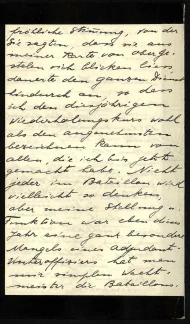 fröhliche Stimmung, von der
Sie sagten, dass sie aus
meiner Karte von Oberge-
steln sich blicken liess,
dauerte den ganzen Dienst
hindurch an, so dass
ich den diesjährigen
Wiederholungskurs wohl
als den angenehmsten
bezeichnen kann von
allen, die ich bis jetzt
gemacht habe. Nicht
jeder im Bataillon wird
vielleicht so denken,
aber meine Stellung u.
Funktion war eben dieses
Jahr eine ganz besondere
Mangels eines Adjudant-
Unteroffiziers hat man
mir simplen Wacht-
meister die Bataillons-